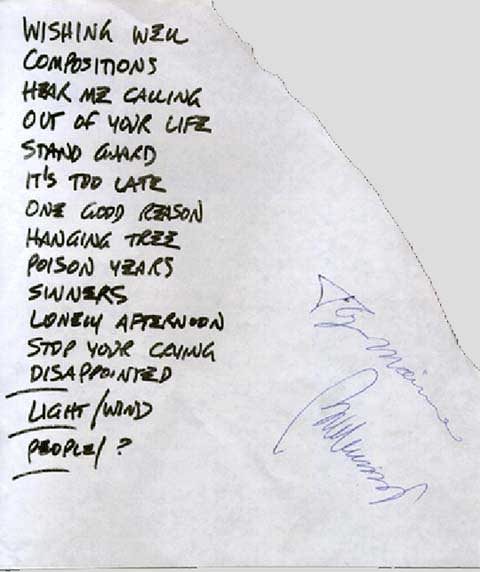 WISHING WELL
COMPOSITIONS
HEAR ME CALLING
OUT OF YOUR LIFE
STAND GUARD
IT'S TOO LATE
ONE GOOD REASON
HANGING TREE
POISON YEARS
SINNERS
LONELY AFTERNOON
STOP YOUR CRYING
DISAPPOINTED
LIGHT/WIND
PEOPLE/ ?